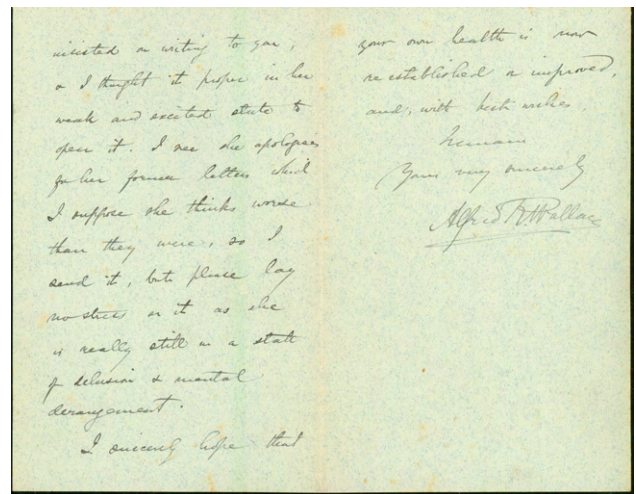 insisted on writing to you,
& I thought it proper in her
weak and excited state to
open it. I see she apologises
for her former letters which
I suppose she thinks worse
than they were, so I
send it, but please lay
no stress on it as she
is really still in a state
of delusion & mental
derangement.
I sincerely hope that
your own health is now
re established or improved,
and, with best wishes,
I remain
Yours very sincerely
Alfred R. Wallace